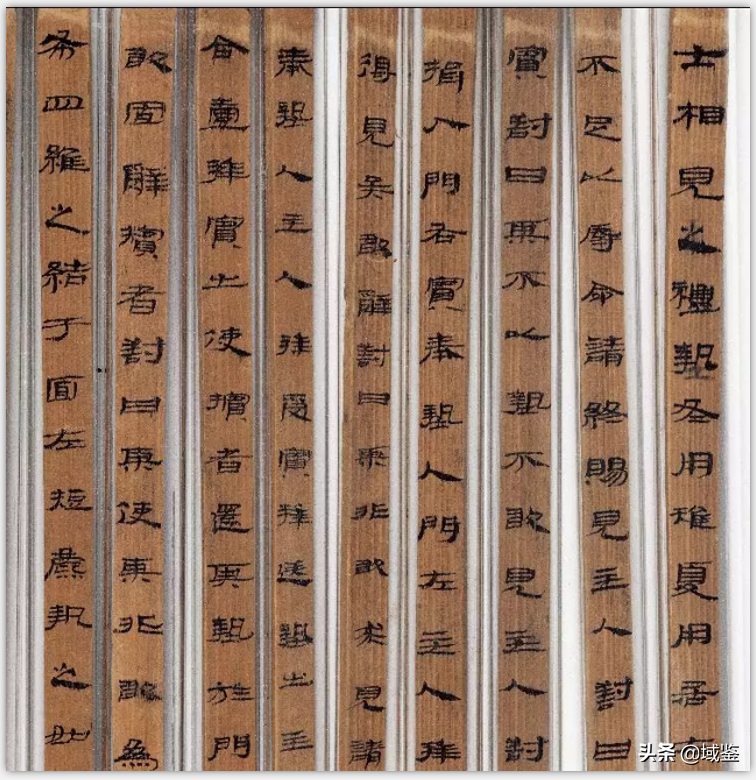 士相見之禮摯冬用雉夏用居
不足以辱命請終賜見主人對曰
賓對曰某不以摯不敢見主人對
揖入門右賓奉摯入門左主人拜
得見矣敢辭對曰某非敢求見請
奉摯入主人拜受賓拜送摯出主
合壹拜賓出使擯者還其摯於門
敢固辭擯者對曰某使某非敢為
布四維之結于面左執之如
头条 @域鉴